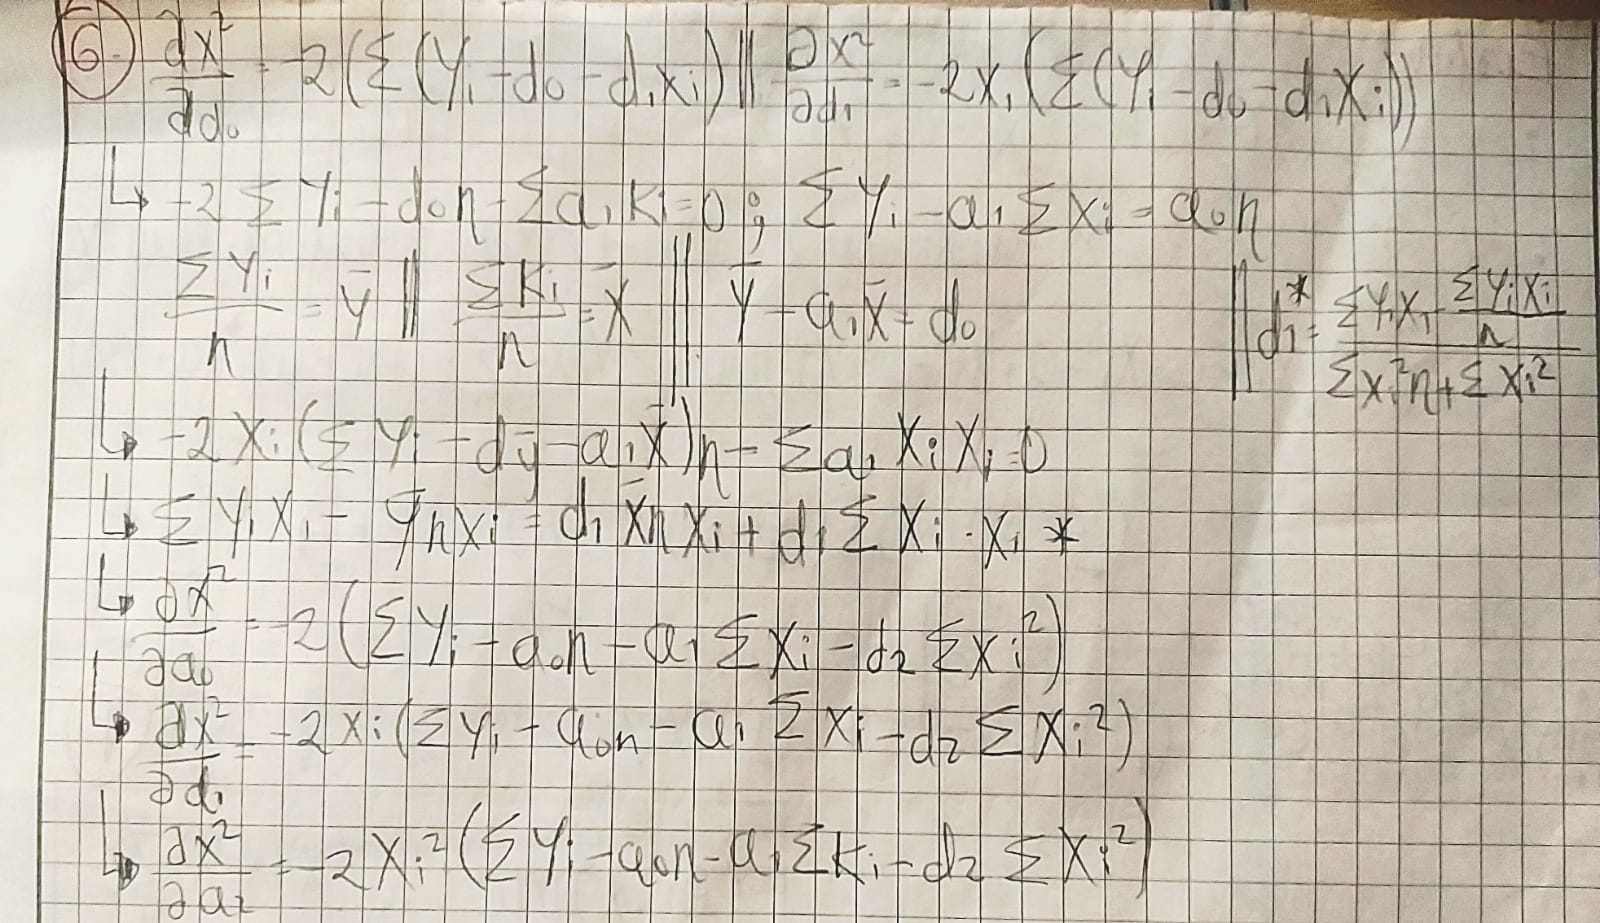 6. ∂x²/∂a₀ = -2(Σ(yᵢ - a₀ - a₁xᵢ) || ∂x²/∂a₁ = -2xᵢ(Σ(yᵢ - a₀ - a₁xᵢ))
↳ -2 Σ yᵢ - a₀n - Σa₁xᵢ = 0 ; Σ yᵢ - a₁ Σ xᵢ = a₀n
Σyᵢ/n = ȳ || Σxᵢ/n = x̄ || ȳ - a₁x̄ = a₀ || a₁* = (Σyᵢxᵢ - Σyᵢxᵢ/n)/(Σxᵢ²n + Σxᵢ²)
↳ -2xᵢ(Σ yᵢ - ȳ - a₁x̄)n - Σa₁ xᵢxᵢ = 0
↳ Σ yᵢxᵢ - ȳnxᵢ = a₁x̄nxᵢ + a₁ Σ xᵢ · xᵢ *
↳ ∂x²/∂a₀ = -2(Σyᵢ - a₀n - a₁Σxᵢ - a₂Σxᵢ²)
↳ ∂x²/∂a₁ = -2xᵢ(Σyᵢ - a₀n - a₁Σxᵢ - a₂Σxᵢ²)
↳ ∂x²/∂a₂ = -2xᵢ²(Σyᵢ - a₀n - a₁Σxᵢ - a₂Σxᵢ²)